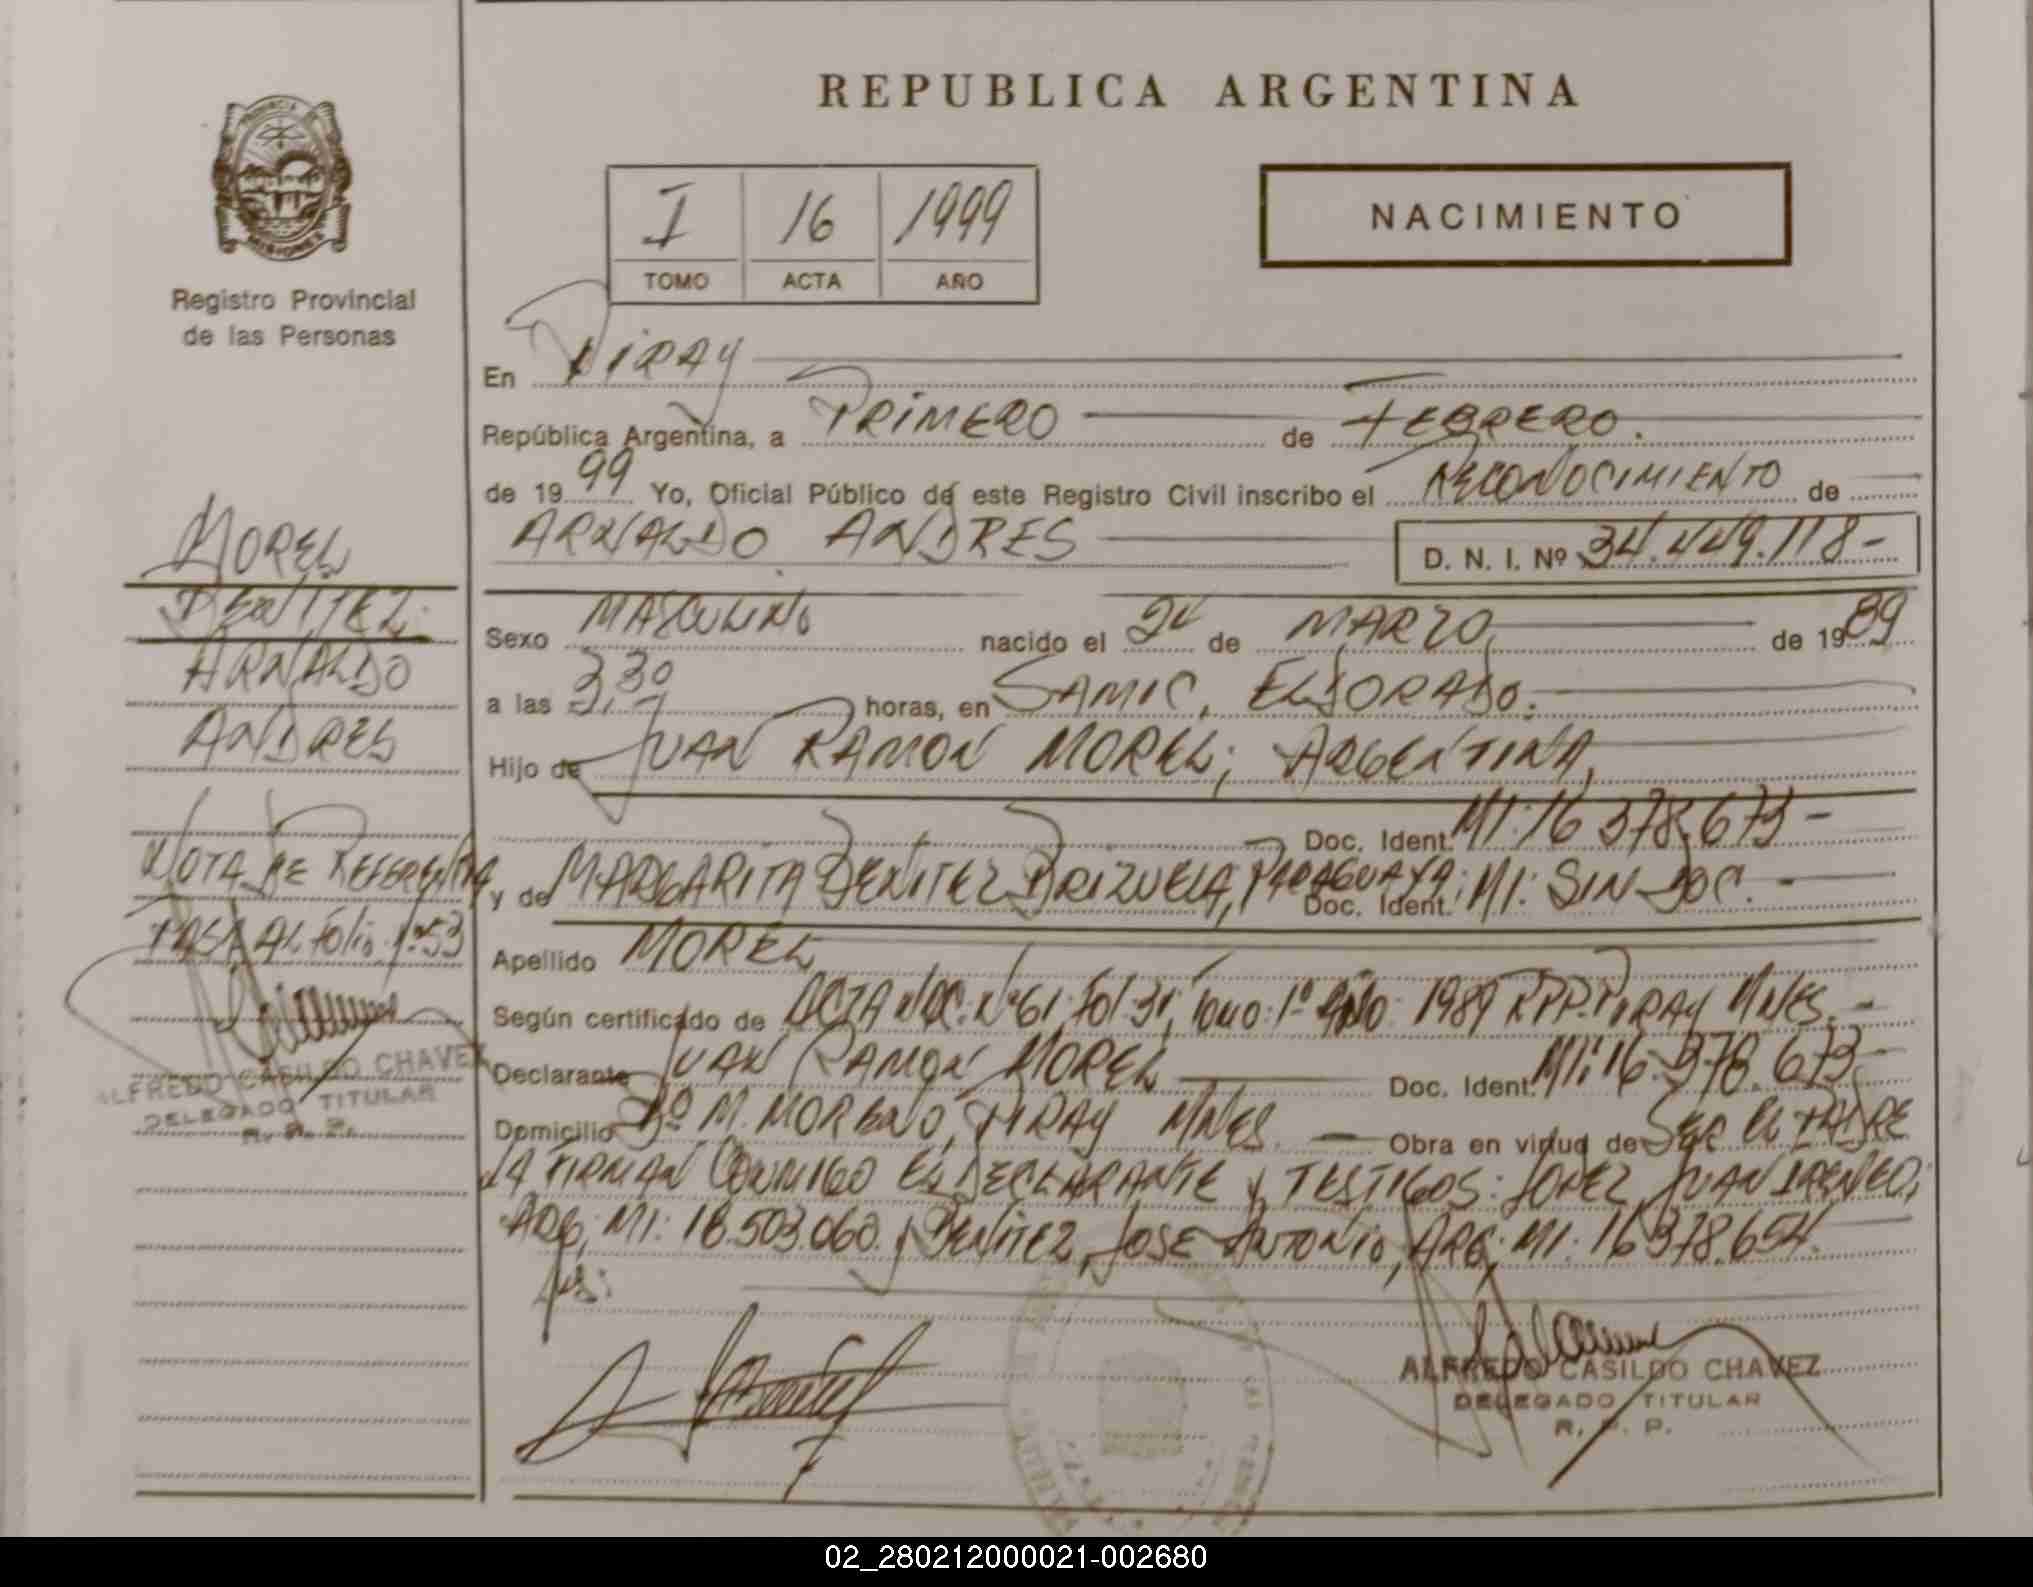 REPUBLICA ARGENTINA
PROVINCIA
MISIONES
Registro Provincial
de las Personas
I 16 1999
TOMO ACTA AÑO
NACIMIENTO
En PIRAY
República Argentina, a PRIMERO de FEBRERO.
de 1999 Yo, Oficial Público de este Registro Civil inscribo el RECONOCIMIENTO de
ARNALDO ANDRES D. N. I. Nº 34.449.118-
Sexo MASCULINO nacido el 24 de MARZO de 1989
a las 3,30 horas, en SAMIC, ELDORADO.
Hijo de JUAN RAMON MOREL; ARGENTINA,
Doc. Ident. MI: 16.378.673-
y de MARGARITA BENITEZ BRIZUELA, PARAGUAYA; Doc. Ident. MI: SIN DOC.-
Apellido MOREL
Según certificado de ACTA NAC: Nº 61, Fol 31, Tomo: 1º Año: 1989 RPP. PIRAY MNES.-
Declarante JUAN RAMON MOREL Doc. Ident. MI: 16.378.673-
Domicilio Bº M. MORENO, PIRAY MNES. Obra en virtud de SER EL PADRE
LA FIRMAN CONMIGO EL DECLARANTE Y TESTIGOS: LOPEZ, JUAN IRENEO;
ARG; MI: 18.503.060. y BENITEZ, JOSE ANTONIO, ARG; MI: 16.378.654.
MOREL
BENITEZ
ARNALDO
ANDRES
NOTA DE REFERENCIA
PASA AL Folio Nº 53
ALFREDO CASILDO CHAVEZ
DELEGADO TITULAR
R. P. P.
ALFREDO CASILDO CHAVEZ
DELEGADO TITULAR
R. P. P.
02_280212000021-002680